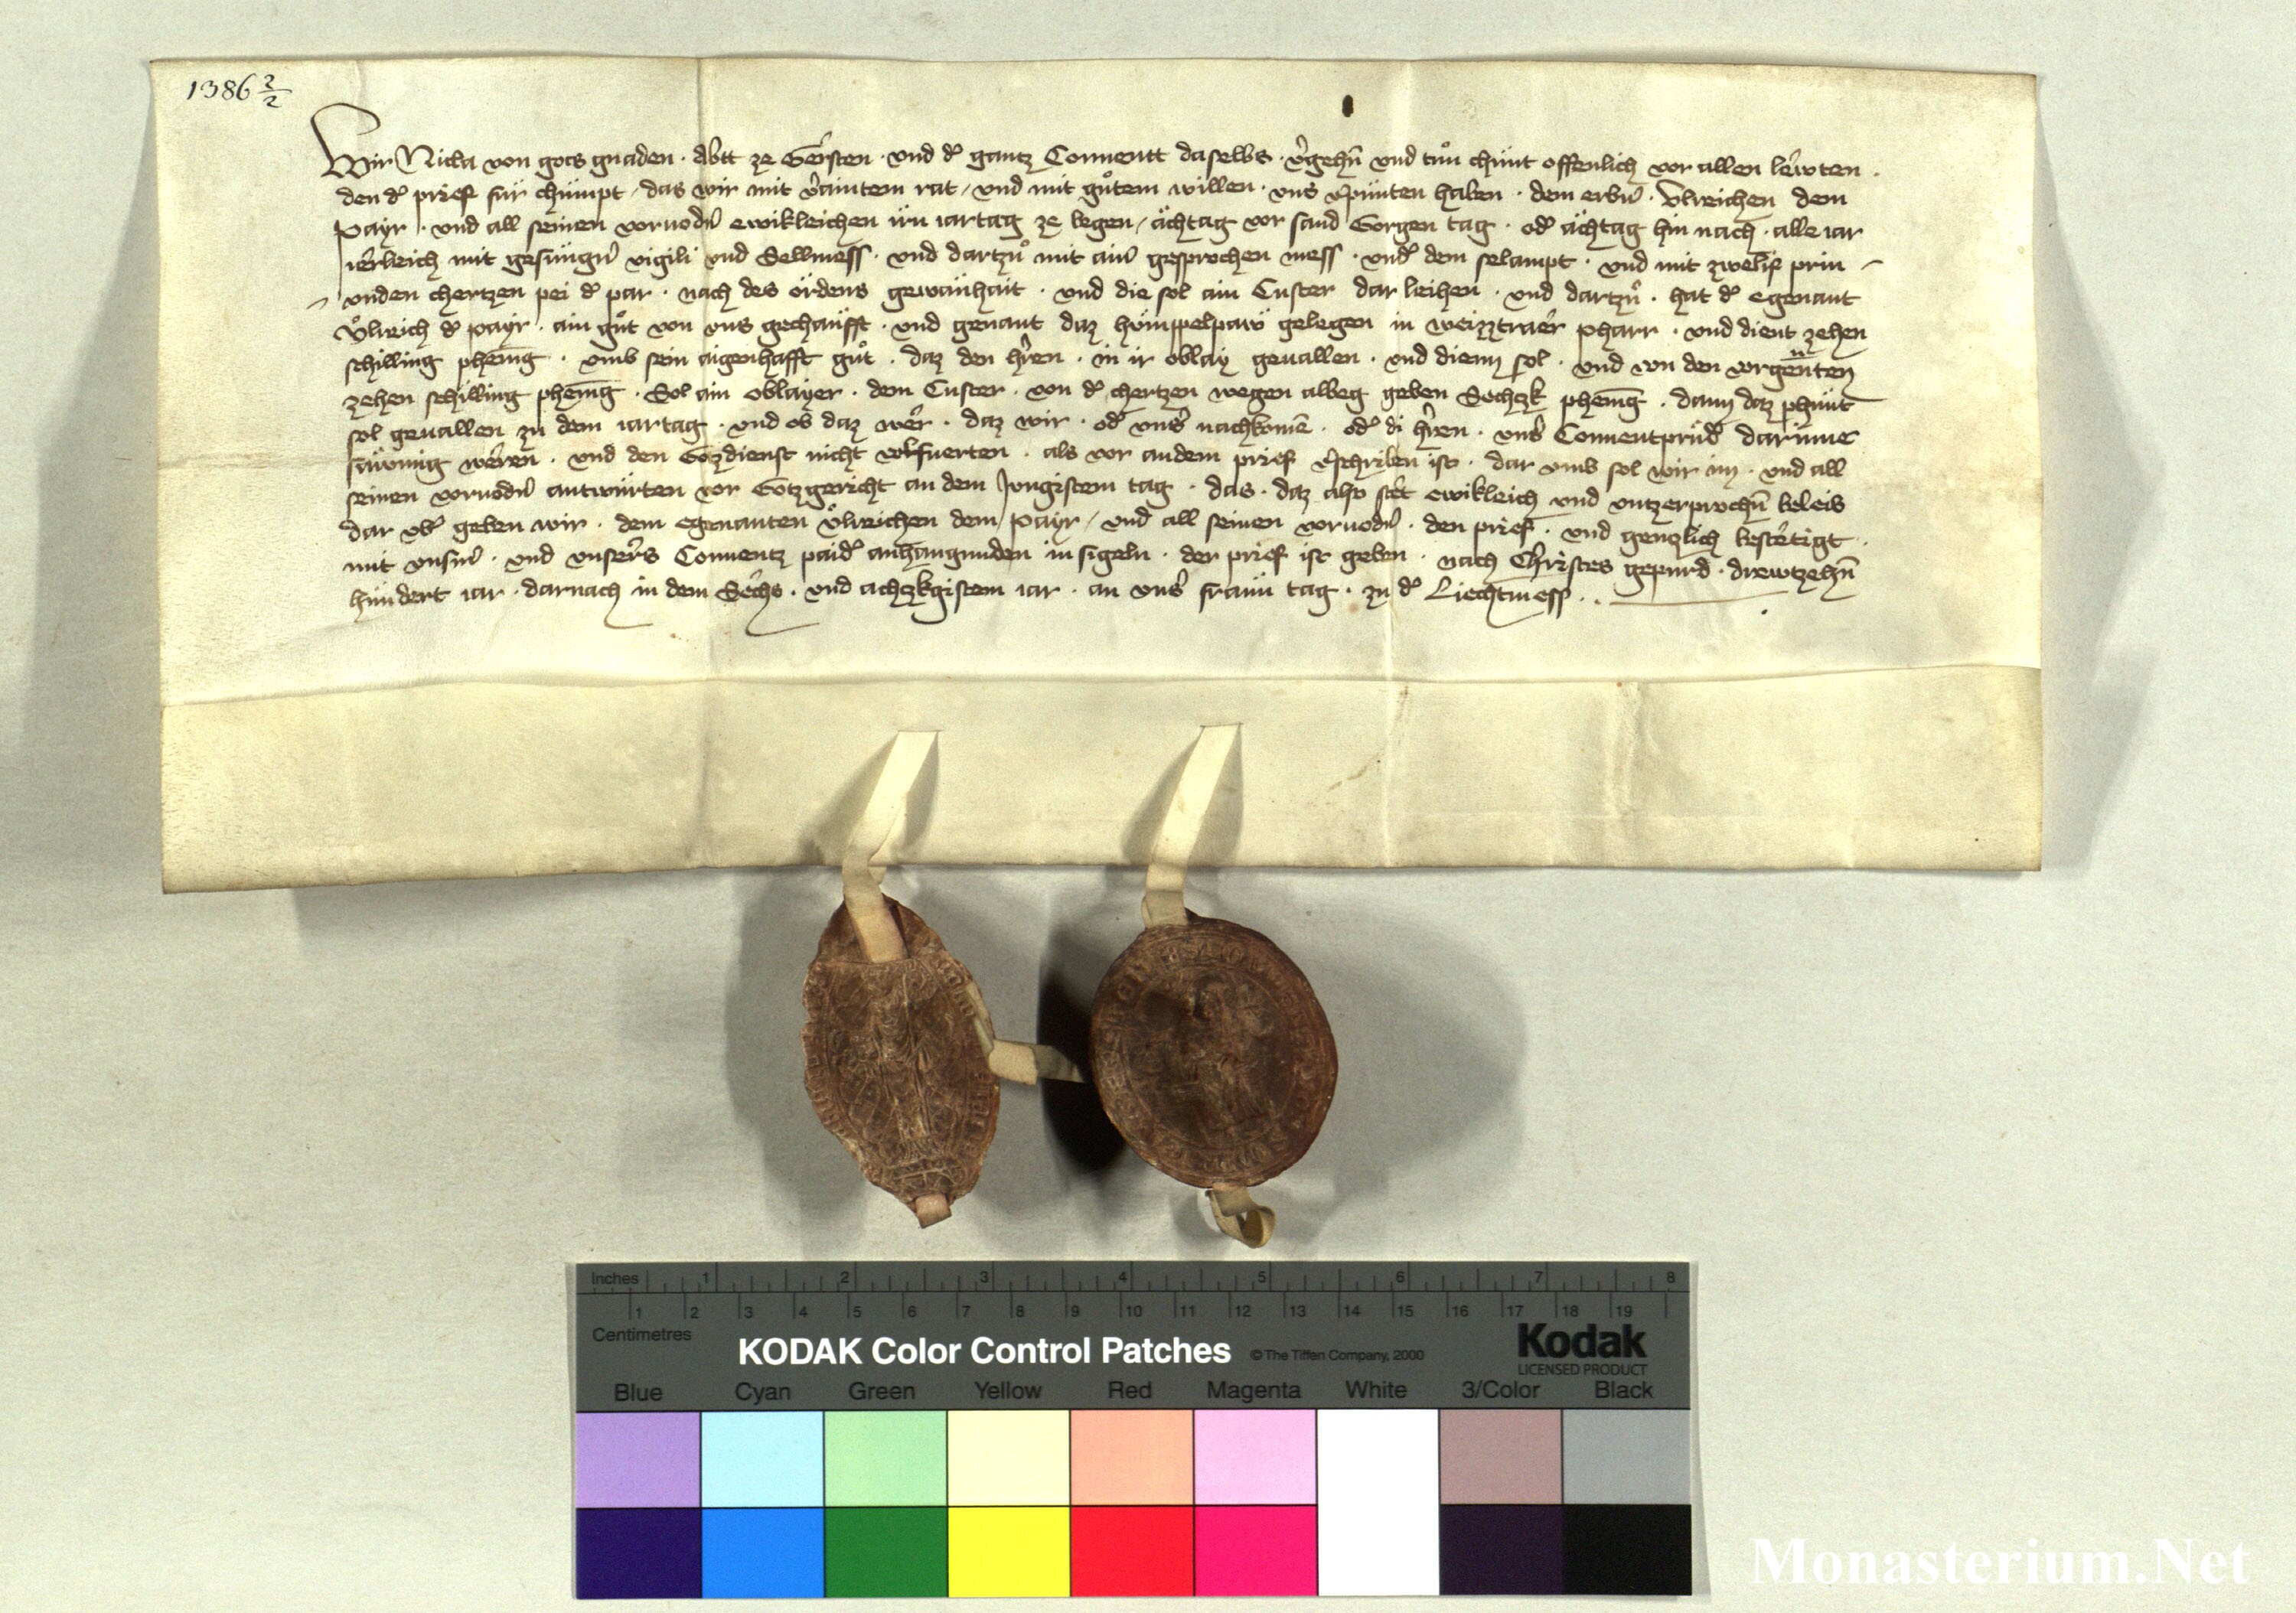 1386 2/2
Wir Nicla von gots gnaden · Abtt ze Gêrsten · vnd dˢ gantz Conuentt daselbs · vˢgehn̄ vnd tuͦn chünt offenlich vor allen lêwten ·
den dˢ prief für chümpt / das wir mit vˢaintem rat / vnd mit guͦtem willen · vns vˢpünten haben · dem erbnˢ · Vlreichen dem
Payr · vnd all seinen voruodnˢ ewikleichen irn iartag ze legen / ächtag vor sand Gorgen tag · odˢ ächtag hin nach · alle iar
iêrleich mit gesüngnˢ vigili vnd Sellmess · vnd dartzuͦ mit ainˢ gesprochen mess · vndˢ dem selampt · vnd mit zwelif prin –
– vnden chertzen pei dˢ par · nach des ördens gewanhait · vnd die sol ain Custer dar leihen · vnd dartzuͦ · hat dˢ egenant
Vͦlreich dˢ payr · ain guͦt von vns gechaufft · vnd genant daz hümppelpaw gelegen in weizztraêr pharr · vnd dient zehen
schilling phenīg · vmb sein aigenhafft guͦt · daz den hˢren · in ir oblay geuallen · vnd dienn sol · vnd von den vorgenn̄ten
zehen schilling phenīg · Sol ain oblayer · dem Custer · von dˢ chertzen wegen albeg geben Sechzk phenīg · dann daz phünt
sol geuallen zu dem iartag · vnd ob daz wêr · daz wir · odˢ vnsˢ nachkomē · odˢ di hˢren · vnsˢ Conuentprüdˢ darinne
saẅmig wêren · vnd den Gozdienst nicht volfuerten · als vor an dem prief vˢschriben ist · dar vmb sol wir im · vnd all
seinen voruodnˢ antwürten vor Gotzgericht an dem Jungistem tag · das · daz also stêt ewikleich vnd vntzerprochn̄ beleib
dar vbˢ geben wir · dem egenanten Vͦlreichen dem / payr / vnd all seinen voruodnˢ · den prief · vnd genzlich bestêtigt ·
mit vnsmˢ · vnd vnserˢs Conuentz paidˢ anhangunden insigeln · der prief ist geben · nach Christes gepurd · drewtzehn̄
hündert iar · darnach in dem Sêchs · vnd achzkgistem iar · an vnsˢ fraun tag · zu dˢ Liechtmess · .
Inches 1 2 3 4 5 6 7 8
1 2 3 4 5 6 7 8 9 10 11 12 13 14 15 16 17 18 19
Centimetres
KODAK Color Control Patches © The Tiffen Company, 2000 Kodak
LICENSED PRODUCT
Blue Cyan Green Yellow Red Magenta White 3/Color Black
Monasterium.Net